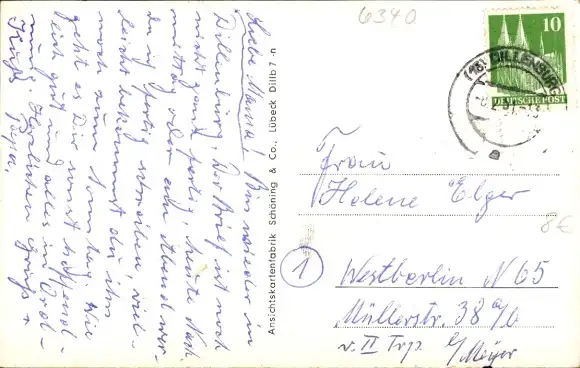 Liebe Mama! Bin wieder in
Dillenburg. Der Brief ist noch
nicht ganz fertig, heute Nach-
mittag oder am Abend wer-
de ich fertig schreiben, viel-
leicht bekommst du ihn
noch zum Sonntag. Wie
geht es Dir sonst? Hoffend-
lich gut und alles in Ord-
nung. Herzlichen Gruß +
Kuß
Ansichtskartenfabrik Schöning & Co., Lübeck Dillb 7 -n
6340
10
DEUTSCHE POST
(16) DILLENBURG
Frau
Helene Elger
8€
1
Westberlin N 65
Müllerstr. 38 a/b
v. II Trp. b/Meyer